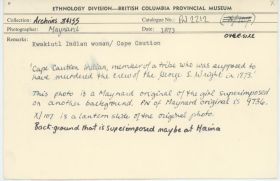 ETHNOLOGY DIVISION—BRITISH COLUMBIA PROVINCIAL MUSEUM
Collection: Archives 34155 Catalogue No.: PN 2212
Photographer: Maynard Date: 1873 OVER-SIZE
Remarks:
Kwakiutl Indian woman/ Cape Caution
'Cape Caution Indian, member of a tribe who was supposed to
have murdered the crew of the George S. Wright in 1873.'
This photo is a Maynard original of the girl superimposed
on another background. PN of Maynard original is 9736.
is a lantern slide of the original
Background that is superimposed maybe at Haina